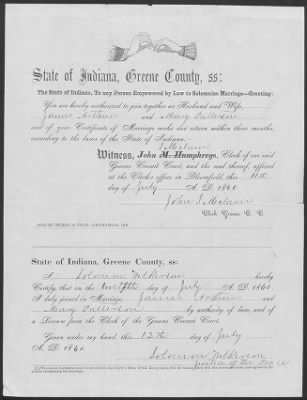 State of Indiana, Greene County, ss:
The State of Indiana, To any Person Empowered by Law to Solemnize Marriage—Greeting:
You are hereby authorized to join together as Husband and Wife,
James Arthur and Mary Patterson
and of your Certificate of Marriage make due return within three months,
according to the laws of the State of Indiana.
J Milam
Witness, John M. Humphreys, Clerk of our said
Greene Circuit Court, and the seal thereof, affixed
at the Clerk's office in Bloomfield, this 11th
day of July A. D. 1860
John J Milam
Clerk Greene C. C.
State of Indiana, Greene County, ss:
I Solomon Wilkerson hereby
Certify, that on the twelfth day of July A. D. 1860
I duly joined in Marriage, James Arthur and
Mary Patterson by authority of law, and of
a License from the Clerk of the Greene Circuit Court.
Given under my hand this 12th day of July
A. D. 1860.
Solomon Wilkerson
Justice of the Peace